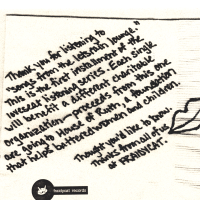 Thank you for listening to
songs from the letstalk lounge."
This is the first installment of the
overseat listening series. Each single
will benefit a different charitable
organization—proceeds from this one
are going to House of Ruth, a foundation
that helps battered women and children.
Thought you'd like to know.
Thanks from all of us
at FRAIDYCAT.
fraidycat records